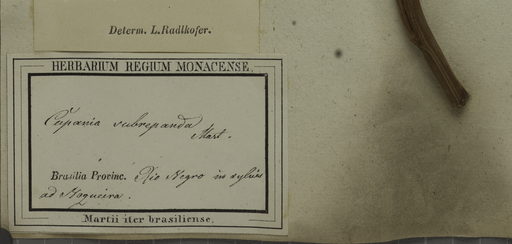 Determ. L. Radlkofer.
HERBARIUM REGIUM MONACENSE.
Cupania subrepanda
Mart.
Brasilia Provinc. Rio Negro in sylvis
ad Nogueira.
Martii iter brasiliense.